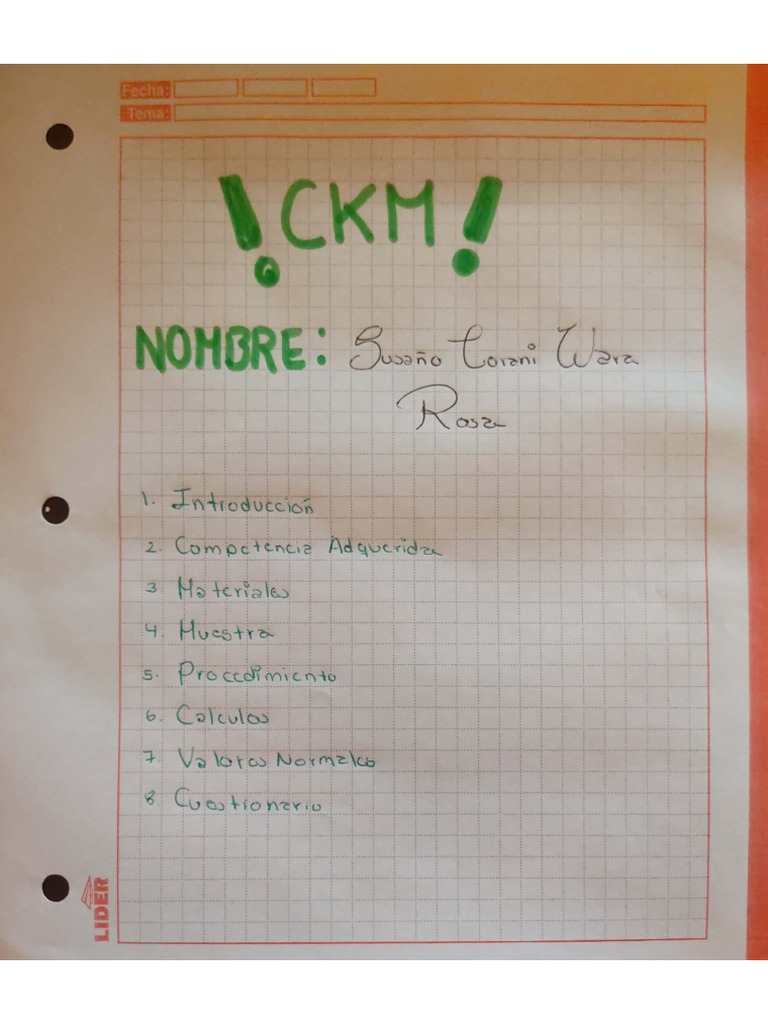 Fecha:
Tema:
!CKM!
NOMBRE: Susaño Corani Wara
Rosa
1. Introducción
2. Competencia Adquerida
3 Materiales
4. Muestra
5. Procedimiento
6. Calculos
7. Valores Normales
8 Cuestionario
LIDER